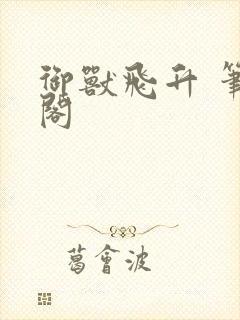 御獸飛升 筆
閣
葛會波